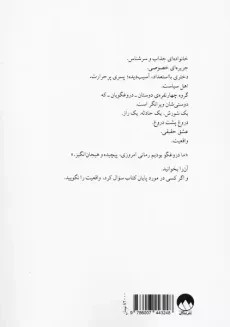 خانواده‌ای جذاب و سرشناس.
جزیره‌ای خصوصی.
دختری بااستعداد، آسیب‌دیده؛ پسری پرحرارت،
اهل سیاست.
گروه چهارنفره‌ی دوستان ـ دروغگویان ـ که
دوستی‌شان ویرانگر است.
یک شورش. یک حادثه. یک راز.
دروغ پشت دروغ.
عشق حقیقی.
واقعیت.
«ما دروغگو بودیم رمانی امروزی، پیچیده و هیجان‌انگیز.»
آن‌را بخوانید.
و اگر کسی در مورد پایان کتاب سؤال کرد، واقعیت را نگویید.
9 786007 443248